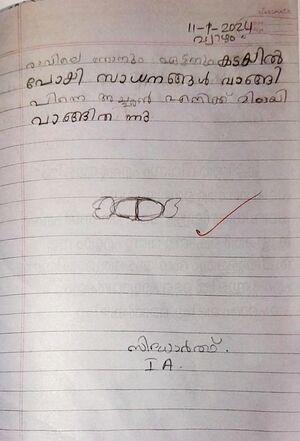 11-1-2024
വ്യാഴം
രാവിലെ ഞാനും ഏട്ടനും കടയിൽ
പോയി സാധനങ്ങൾ വാങ്ങി
പിന്നെ അച്ഛൻ എനിക്ക് മിഠായി
വാങ്ങിത ന്നു
സിദ്ധാർത്ഥ്.
I A.